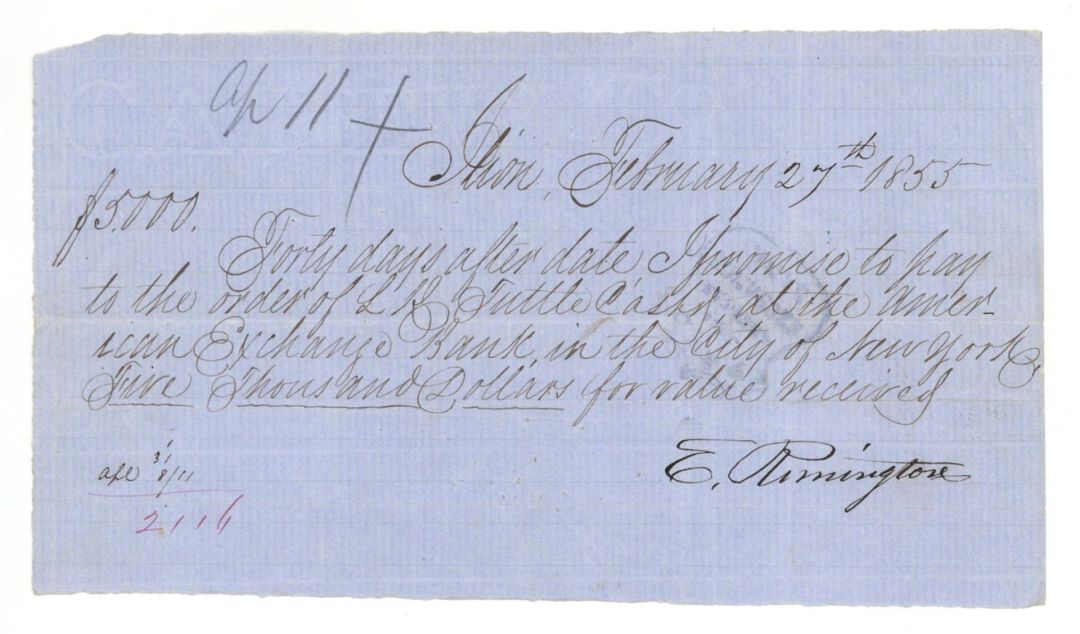 Ap 11
Ilion, February 27th 1855
$5.000.
Forty days after date I promise to pay
to the order of L B Tuttle Cashr, at the Amer-
ican Exchange Bank, in the City of New York,
Five Thousand Dollars for value received
E. Remington
31
apl 8/11
2116